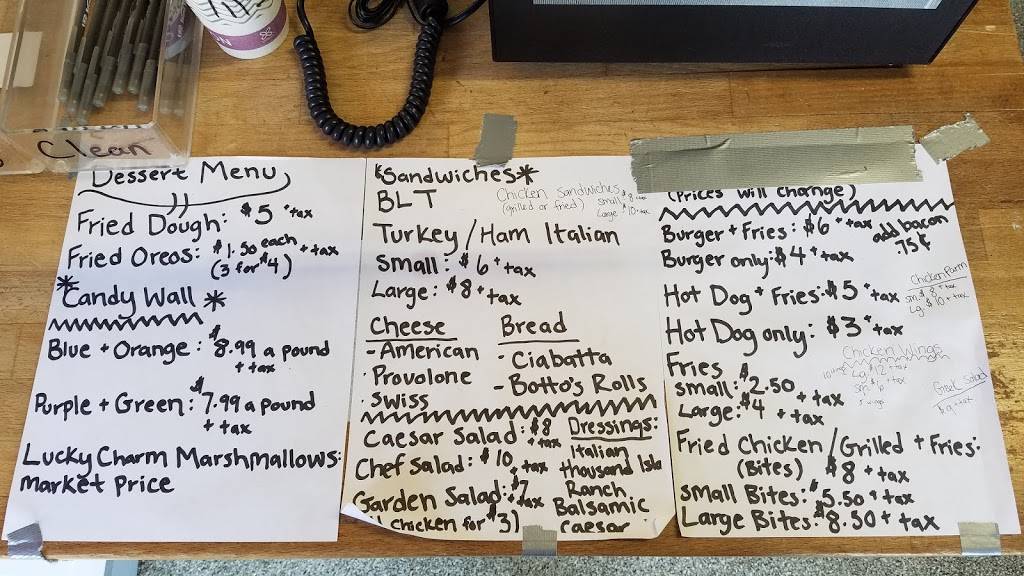 Clean
Dessert Menu
Fried Dough: $5 + tax
Fried Oreos: $1.50 each + tax
(3 for $4)
*Candy Wall*
Blue + Orange: $8.99 a pound
+ tax
Purple + Green: $7.99 a pound
+ tax
Lucky Charm Marshmallows:
Market Price
*Sandwiches*
BLT
Chicken Sandwiches
(grilled or fried)
small $8 + tax
Large $10 + tax
Turkey/Ham Italian
Small: $6 + tax
Large: $8 + tax
Cheese
- American
- Provolone
- Swiss
Bread
- Ciabatta
- Botto's Rolls
Caesar Salad: $8 + tax
Chef Salad: $10 + tax
Garden Salad: $7 + tax
chicken for $3)
Dressings:
Italian
thousand Isla
Ranch
Balsamic
Caesar
(Prices will change)
Burger + Fries: $6 + tax
add bacon
.75¢
Burger only: $4 + tax
Chicken Parm
sm. $8 + tax
Lg. $10 + tax
Hot Dog + Fries: $5 + tax
Hot Dog only: $3 + tax
Chicken Wings
Lg. $12 + tax
Sm. $6 + tax
5 wings
Greek Salad
$9 + tax
Fries
Small: $2.50 + tax
Large: $4 + tax
Fried Chicken/Grilled + Fries:
(Bites) $8 + tax
Small Bites: $5.50 + tax
Large Bites: $8.50 + tax